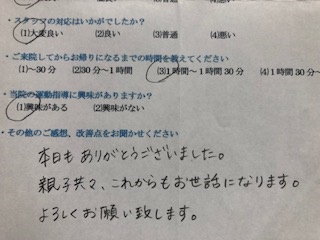 ・スタッフの対応はいかがでしたか?
(1)大変良い (2)良い (3)普通 (4)悪い
・ご来院してからお帰りになるまでの時間を教えてください
(1)～30分 (2)30分～1時間 (3)1時間～1時間30分 (4)1時間
・当院の運動指導に興味がありますか?
(1)興味がある (2)興味がない
・その他のご感想、改善点をお聞かせください
本日もありがとうございました。
親子共々、これからもお世話になります。
よろしくお願い致します。